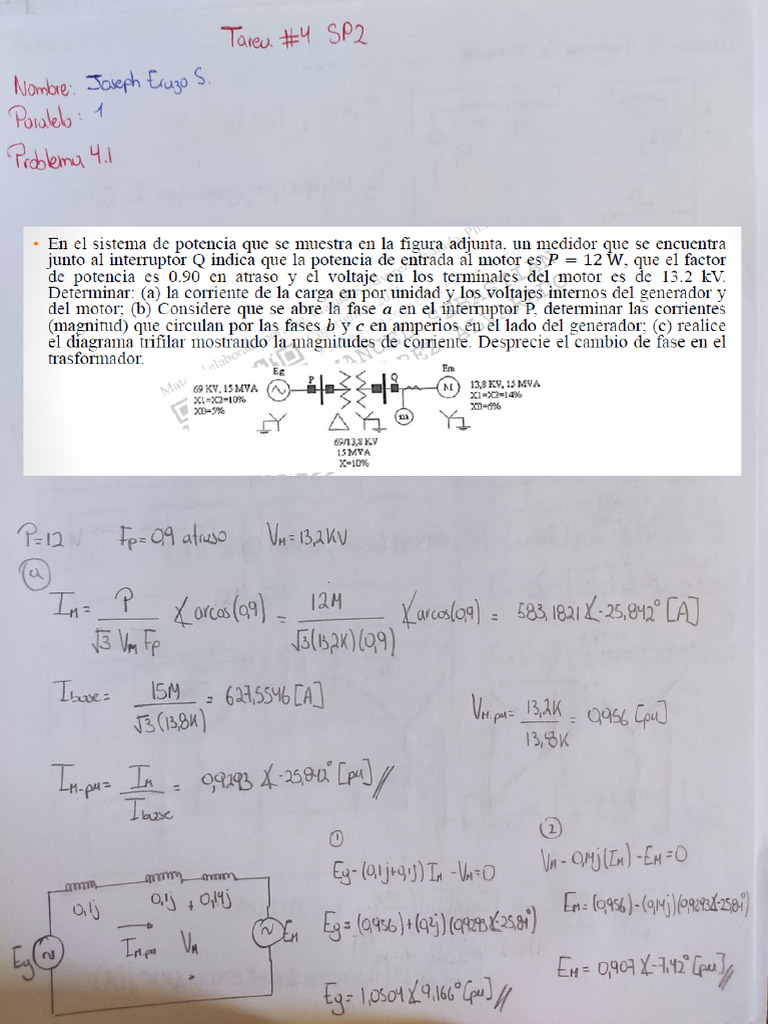 Tarea #4 SP2
Nombre: Joseph Erazo S.
Paralelo: 1
Problema 4.1
• En el sistema de potencia que se muestra en la figura adjunta, un medidor que se encuentra
junto al interruptor Q indica que la potencia de entrada al motor es P = 12 W, que el factor
de potencia es 0.90 en atraso y el voltaje en los terminales del motor es de 13.2 kV.
Determinar: (a) la corriente de la carga en por unidad y los voltajes internos del generador y
del motor; (b) Considere que se abre la fase a en el interruptor P, determinar las corrientes
(magnitud) que circulan por las fases b y c en amperios en el lado del generador; (c) realice
el diagrama trifilar mostrando la magnitudes de corriente. Desprecie el cambio de fase en el
trasformador.
Eg P Q Em
69 KV, 15 MVA
X1=X2=10%
X0=5%
M
13,8 KV, 15 MVA
X1=X2=14%
X0=6%
m
69/13,8 KV
15 MVA
X=10%
P=12 Fp=0,9 atraso VM=13,2KV
(a)
IM = P / √3 VM Fp ∡ arcos(0,9) = 12M / √3(13,2K)(0,9) ∡ arcos(0,9) = 583,1821 ∡-25,842° [A]
Ibase = 15M / √3(13,8K) = 627,5546 [A]
VM.pu = 13,2K / 13,8K = 0,956 [pu]
IM-pu = IM / Ibase = 0,9293 ∡-25,842° [pu] //
①
Eg - (0,1j+0,1j) IM - VM = 0
Eg = (0,956) + (0,2j) (0,9293 ∡-25,84°)
Eg = 1,0504 ∡ 9,166° [pu] //
②
VM - 0,14j (IM) - EM = 0
EM = (0,956) - (0,14j) (0,9293 ∡-25,84°)
EM = 0,907 ∡-7,42° [pu] //
0,1j 0,1j + 0,14j
Eg IM.pu VM EM